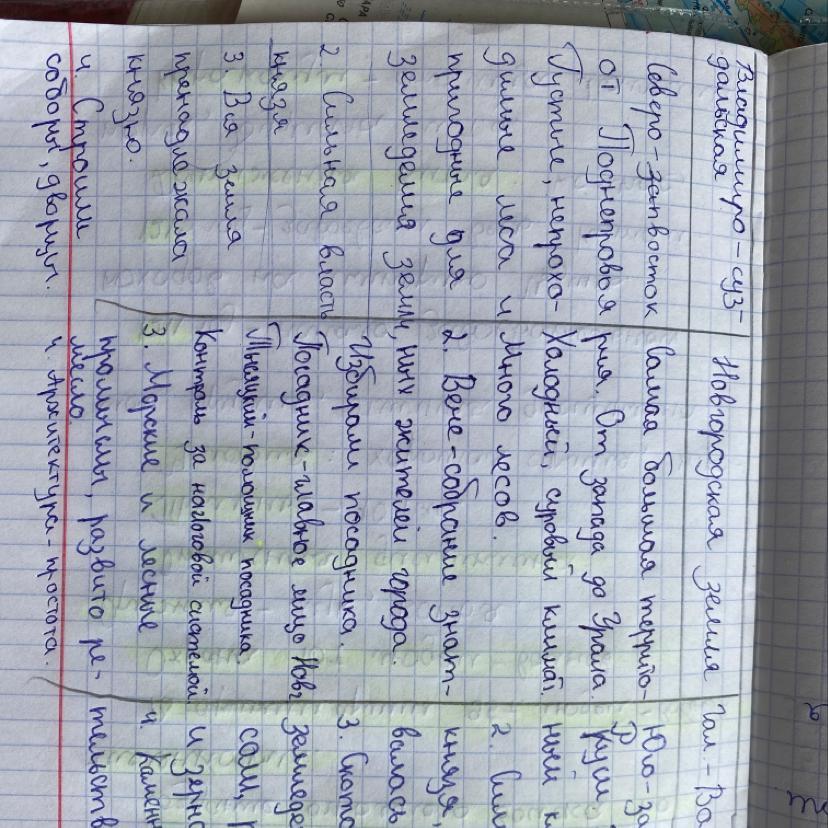 Владимиро-суз-
дальская
Северо-запвосток
от Поднепровья
Пустые, непрохо-
димые леса и
пригодные для
земледелия земли,
2. Сильная власть
князя
3. Вся земля
пренадлежала
князю.
4. Строили
соборы, дворцы.
Новгородская земля
Самая большая террито-
рия. От запада до Урала.
Холодный, суровый климат.
Много лесов.
2. Вече - собрание знат-
ных жителей города.
Избирали посадника.
Посадник - главное лицо Новг
Тысяцкий - помощник посадника
Контроль за налоговой системой.
3. Морские и лесные
промыслы, развито ре-
месло.
4. Архитектура - простота.
Гал. - Во
Юго-за
Руси
ный к
2. Сил
князя,
валась
3. Ското
земледе
сош, р
и зерно
4. Каменн
тельств